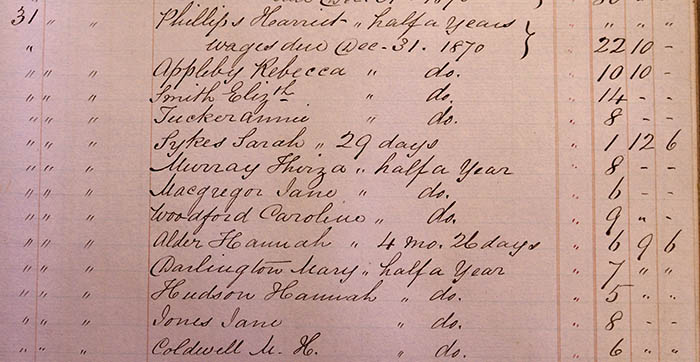 31 " " Phillips Harriet " half a Years " " " "
" wages due Dec. 31. 1870 " 22 10 -
" " " Appleby Rebecca " do. " 10 10 -
" " " Smith Elizth " do. " 14 - -
" " " Tucker Annie " do. " 8 - -
" " " Sykes Sarah " 29 days " 1 12 6
" " " Murray Thirza " half a Year " 8 - -
" " " Macgregor Jane " do. " 6 - -
" " " Woodford Caroline " do. " 9 " -
" " " Alder Hannah " 4 mo. 26 days " 6 9 6
" " " Darlington Mary " half a Year " 7 " "
" " " Hudson Hannah " do. " 5 " "
" " " Jones Jane " do. " 8 - "
" " " Coldwell M. H. " do. " 6 " "